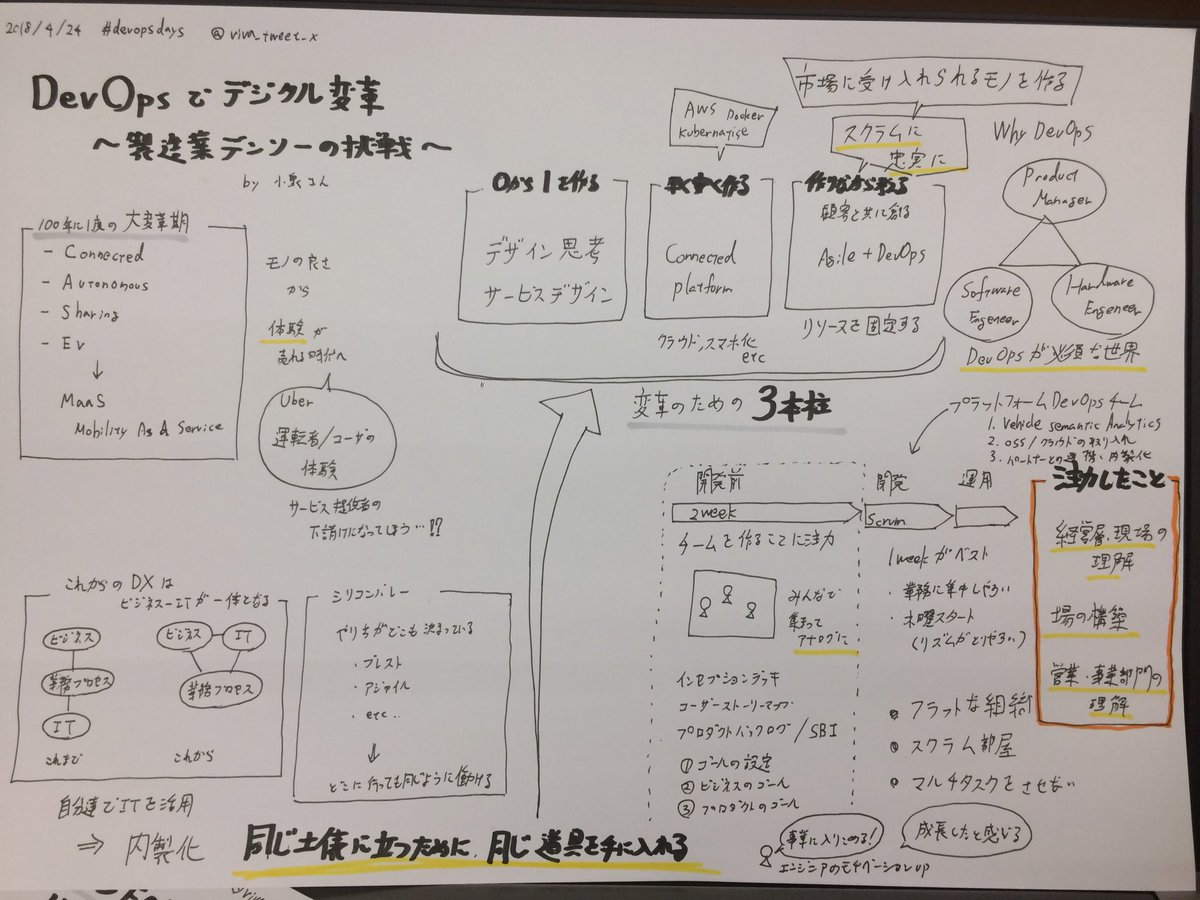 2018/4/24 #devopsdays @viva_tweet_x
DevOpsでデジタル変革
〜製造業デンソーの挑戦〜
by 小泉さん
100年に1度の大変革期
- Connected
- Autonomous
- Sharing
- Ev
↓
MaaS
Mobility As a Service
モノの良さ
から
体験が
売れる時代へ
Uber
運転者/ユーザの
体験
サービス提供者の
下請けになってしまう…!?
これからのDXは
ビジネスーITが一体となる
ビジネス
業務プロセス
IT
これまで
ビジネス
IT
業務プロセス
これから
自分達でITを活用
⇒ 内製化
シリコンバレー
やり方がどこも決まっている
・ブレスト
・アジャイル
・etc..
↓
どこに行っても同じように働ける
同じ土俵に立つために、同じ道具を手に入れる
0から1を作る
デザイン思考
サービスデザイン
AWS Docker
Kubernatise
早く安く作る
Connected
platform
クラウド、スマホ化
etc
市場に受け入れられるモノを作る
スクラムに
忠実に
作りながら考える
顧客と共に創る
Agile+DevOps
リソースを固定する
変革のための3本柱
Why DevOps
Product
Manager
Software
Engeneer
Hardware
Engeneer
DevOpsが必須な世界
プラットフォームDevOpsチーム
1. Vehicle semantic Analytics
2. OSS/クラウドの取り入れ
3. パートナーとの連携、内製化
開発前
2week
チームを作ることに注力
みんなで
集まって
アナログに
インセプションデッキ
ユーザーストーリーマップ
プロダクトバックログ/SBI
① ゴールの設定
② ビジネスのゴール
③ プロダクトのゴール
開発
運用
Scrum
1weekがベスト
・業務に集中しやすい
・木曜スタート
(リズムがとりやすい)
● フラットな組織
● スクラム部屋
● マルチタスクをさせない
注力したこと
経営層、現場の
理解
場の構築
営業・事業部門の
理解
事業に入りこめる!
成長したと感じる
エンジニアのモチベーションup